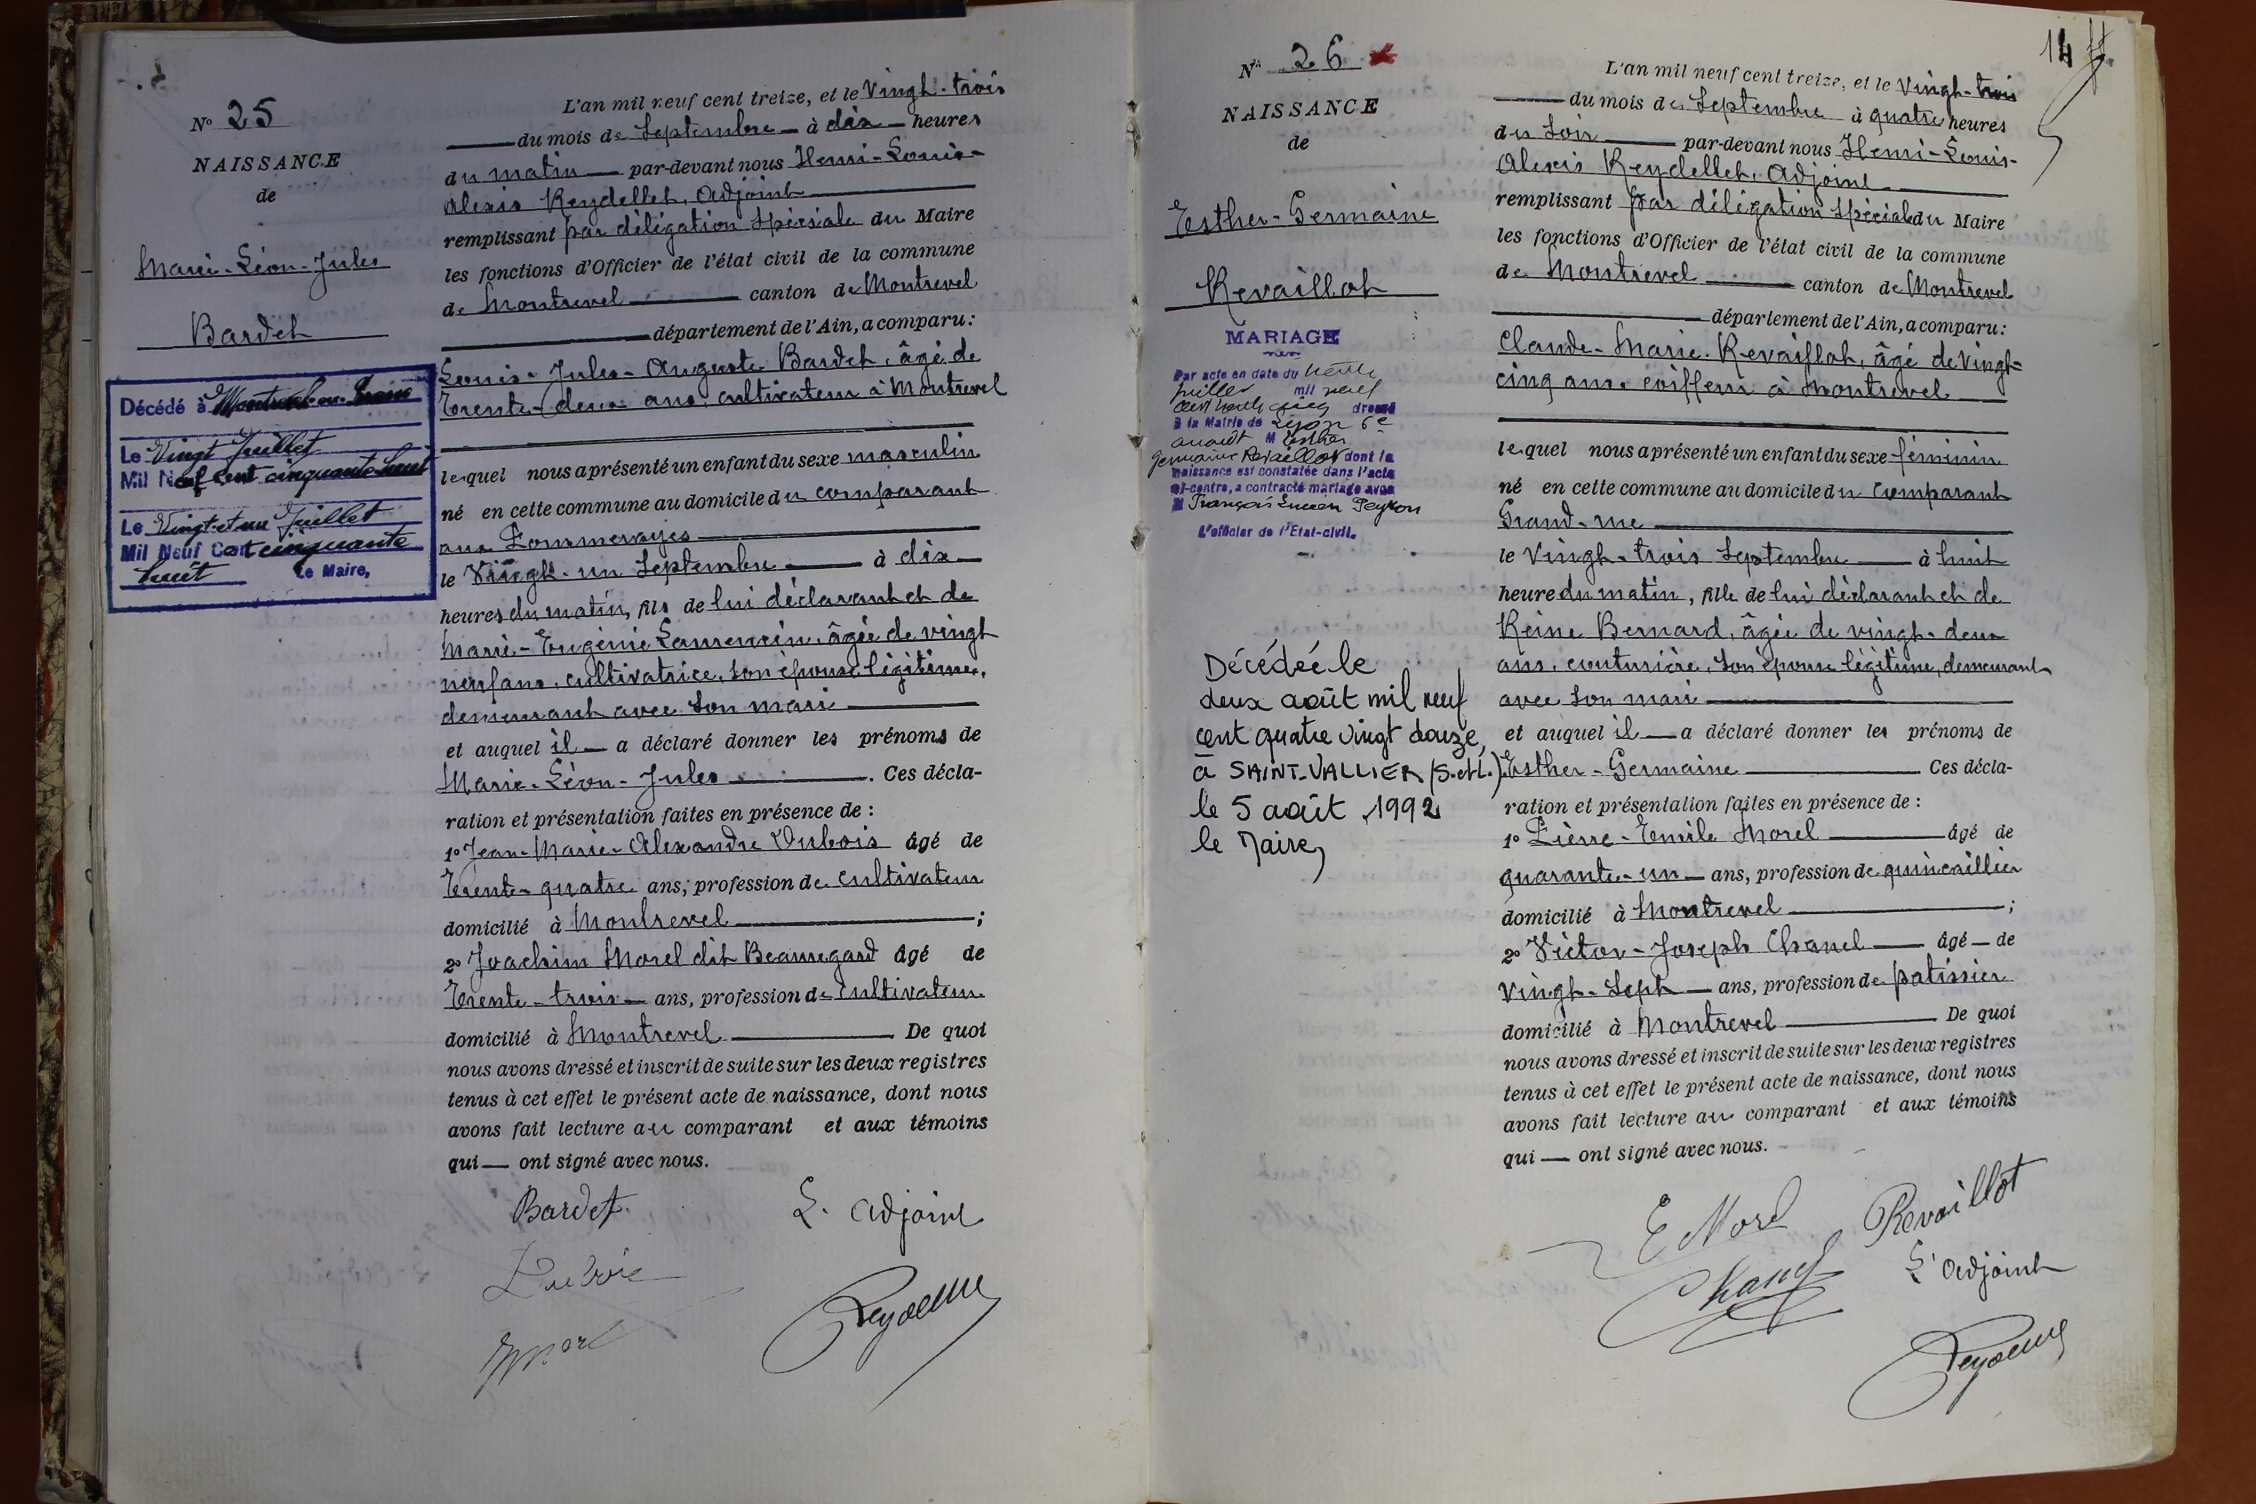 N° 25
NAISSANCE
de
Marie-Léon-Jules
Bardet
Décédé à
Le Vingt Juillet
Mil Neuf Cent cinquante huit
Le Vingt et un Juillet
Mil Neuf Cent cinquante
huit Le Maire,
L'an mil neuf cent treize, et le Vingt-trois
du mois de Septembre à dix heures
du matin par-devant nous Henri-Louis-
Alexis Reydellet, Adjoint
remplissant par délégation spéciale du Maire
les fonctions d'Officier de l'état civil de la commune
de Montrevel canton de Montrevel
département de l'Ain, a comparu:
Louis-Jules-Auguste Bardet, âgé de
Trente-deux ans, cultivateur à Montrevel
lequel nous a présenté un enfant du sexe masculin
né en cette commune au domicile du comparant
aux
le Vingt-un Septembre à dix
heures du matin, fils de lui déclarant et de
Marie-Eugénie Laurencin, âgée de vingt
neuf ans, cultivatrice, son épouse légitime,
demeurant avec son mari
et auquel il a déclaré donner les prénoms de
Marie-Léon-Jules. Ces décla-
ration et présentation faites en présence de :
1° Jean-Marie-Alexandre Dubois âgé de
Trente-quatre ans, profession de cultivateur
domicilié à Montrevel ;
2° Joachim Morel dit Beauregard âgé de
Trente-trois ans, profession de cultivateur
domicilié à Montrevel De quoi
nous avons dressé et inscrit de suite sur les deux registres
tenus à cet effet le présent acte de naissance, dont nous
avons fait lecture au comparant et aux témoins
qui — ont signé avec nous.
Bardet. L'adjoint
Dubois
Morel
N° 26
NAISSANCE
de
Esther-Germaine
Revaillot
MARIAGE
Par acte en date du trente
juillet mil neuf
cent trente cinq dressé
à la Mairie de Lyon 6e
arrondt M Esther
Germaine Revaillot dont la
naissance est constatée dans l'acte
ci-contre, a contracté mariage avec
M François Lucien Peyron
L'officier de l'Etat-civil.
Décédée le
deux août mil neuf
cent quatre vingt douze
à SAINT-VALLIER (S.et L.).
le 5 août 1992
le Maire,
14
L'an mil neuf cent treize, et le Vingt-trois
du mois de Septembre à quatre heures
du soir par-devant nous Henri-Louis-
Alexis Reydellet, Adjoint
remplissant par délégation spéciale du Maire
les fonctions d'Officier de l'état civil de la commune
de Montrevel canton de Montrevel
département de l'Ain, a comparu:
Claude-Marie Revaillot, âgé de vingt-
cinq ans, coiffeur à Montrevel
lequel nous a présenté un enfant du sexe féminin
né en cette commune au domicile du comparant
Grand-rue
le Vingt-trois Septembre à huit
heure du matin, fille de lui déclarant et de
Reine Bernard, âgée de vingt-deux
ans, couturière, son épouse légitime, demeurant
avec son mari
et auquel il a déclaré donner les prénoms de
Esther-Germaine Ces décla-
ration et présentation faites en présence de :
1° Pierre-Emile Morel âgé de
quarante-un ans, profession de quincaillier
domicilié à Montrevel ;
2° Victor-Joseph Chanel âgé de
Vingt-sept ans, profession de patissier
domicilié à Montrevel De quoi
nous avons dressé et inscrit de suite sur les deux registres
tenus à cet effet le présent acte de naissance, dont nous
avons fait lecture au comparant et aux témoins
qui — ont signé avec nous.
E Morel Revaillot
Chanel L'adjoint